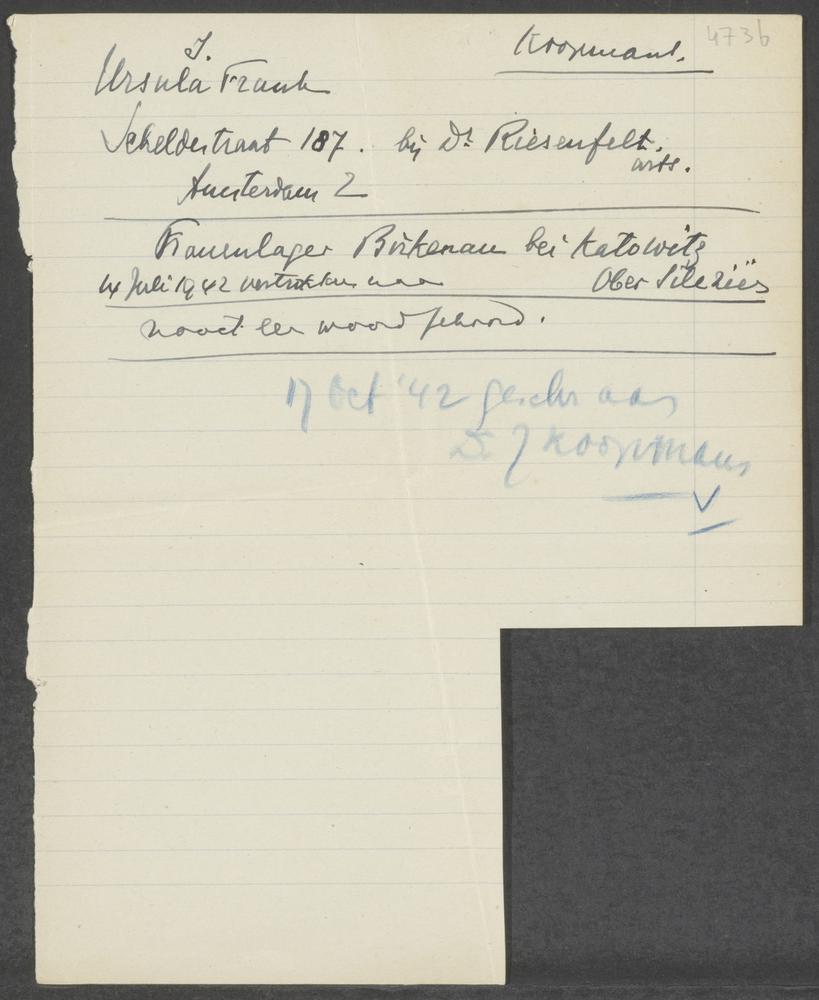 Koopmans.
473b
J.
Ursula Frank
Scheldestraat 187. bij Dr Riesenfelt.
arts.
Amsterdam Z
Frauenlager Birkenau bei Katowitz
14 Juli 1942 vertrokken naar Ober Sileziës
nooit een woord gehoord.
17 Oct '42 geschr aan
Dr J Koopmans